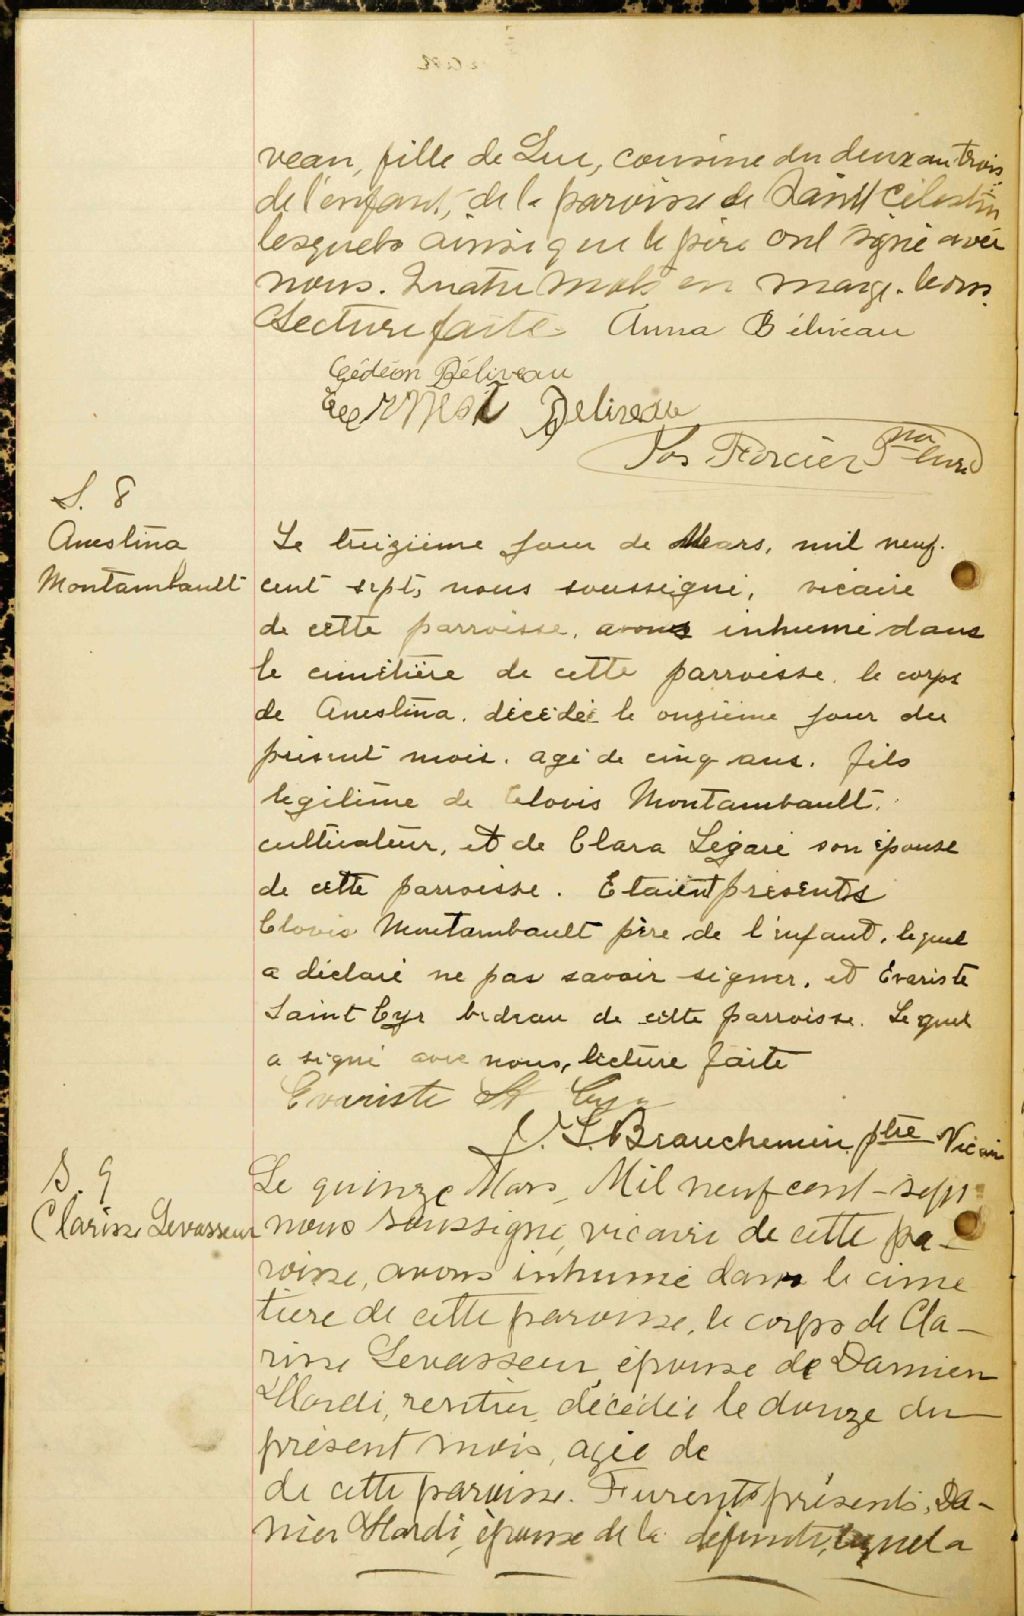 veau, fille de Luc, cousine du deux au trois
de l'enfant, de la paroisse de Saint Célestin
lesquels ainsi que le père ont signé avec
nous. Quatre mots en marge. bons.
Lecture faite. Anna Béliveau
Gédéon Béliveau
Ernest Beliveau
Jos Forcier Ptre Curé
S. 8
Anestina
Montambault
Le treizième jour de Mars, mil neuf.
cent sept, nous soussigné, vicaire
de cette parroisse, avons inhumé dans
le cimitière de cette parroisse. le corps
de Anestina. décédéé le onzième jour du
présent mois. agé de cinq ans. fils
légitime de Clovis Montambault.
cultivateur, et de Clara Légaré son épouse
de cette parroisse. Etaient présents
Clovis Montambault père de l'enfant. lequel
a déclaré ne pas savoir signer, et Évariste
Saint Cyr bedeau de cette parroisse. Lequel
a signé avec nous, lecture faite
Evariste St Cyr
J. L. Beauchemin. ptre Vicaire
S. 9
Clarisse Levasseur
Le quinze Mars, Mil neuf cent-sept
nous soussigné, vicaire de cette pa-
roisse, avons inhumé dans le cime
tière de cette paroisse, le corps de Cla-
risse Levasseur, épouse de Damien
Hardi, rentier, décédée le douze du
présent mois, agée de
de cette paroisse. Furent présents, Da-
mien Hardi, épouse de la défunte, lequel a